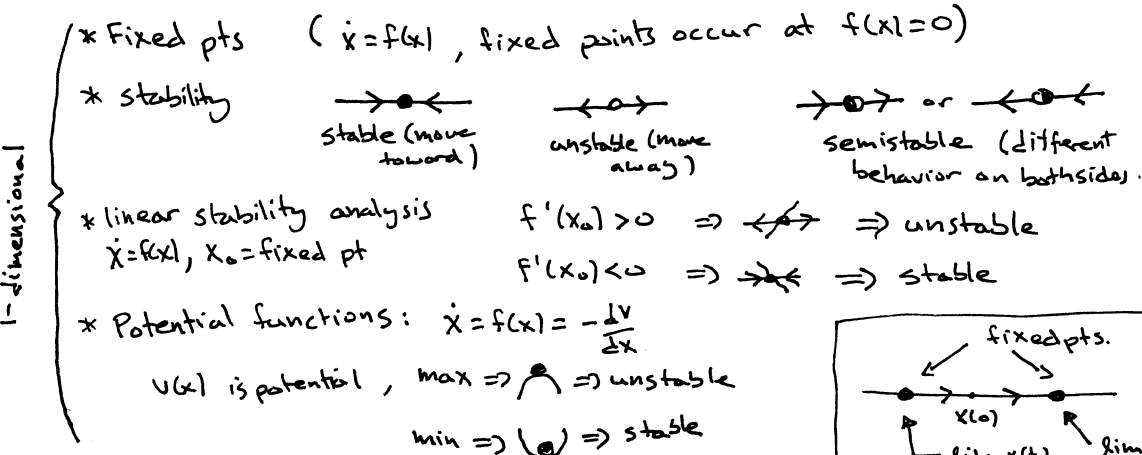 1-dimensional
* Fixed pts ( ẋ=f(x), fixed points occur at f(x)=0)
* stability
stable (move toward)
unstable (move away)
or
semistable (different behavior on bothsides.
* linear stability analysis f'(x₀)>0 => => unstable
ẋ=f(x), x₀=fixed pt f'(x₀)<0 => => stable
* Potential functions: ẋ=f(x)= -dV/dx
V(x) is potential, max => => unstable
min => => stable
fixedpts.
x(0)